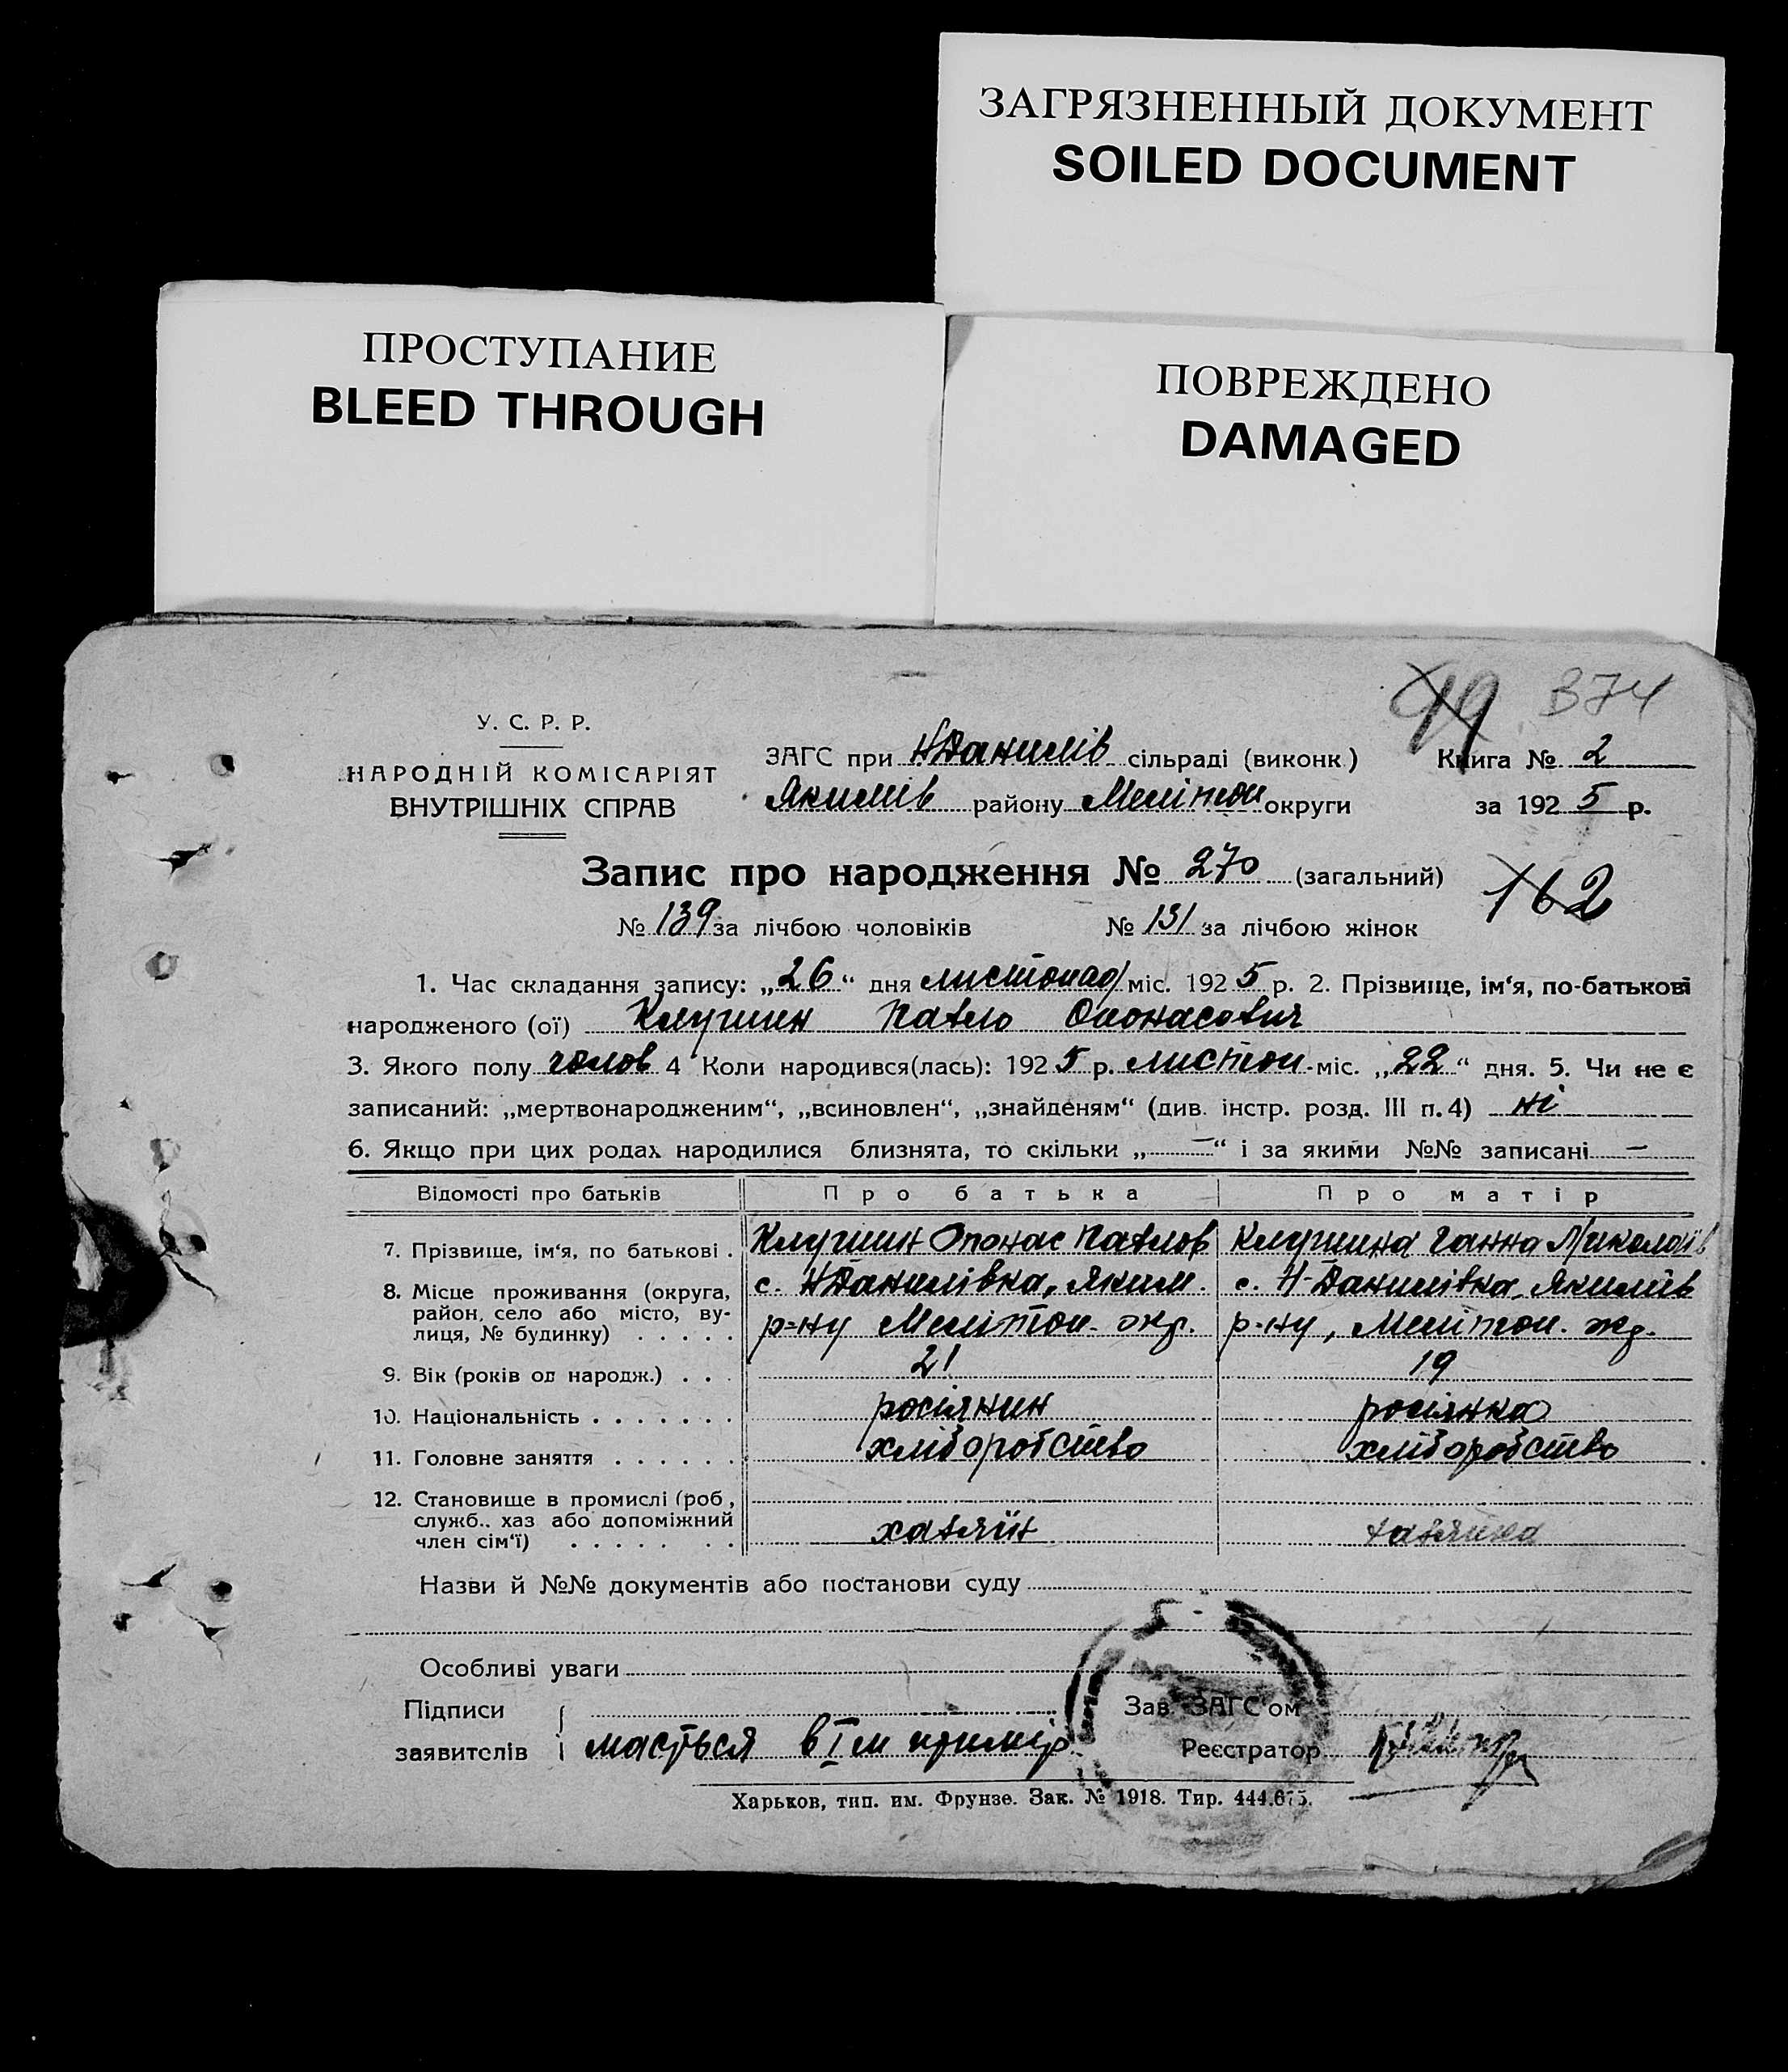 ЗАГРЯЗНЕННЫЙ ДОКУМЕНТ
SOILED DOCUMENT
ПРОСТУПАНИЕ
BLEED THROUGH
ПОВРЕЖДЕНО
DAMAGED
99 374
У. С. Р. Р.
НАРОДНІЙ КОМІСАРІЯТ
ВНУТРІШНІХ СПРАВ
ЗАГС при НДанилів сільраді (виконк) Книга № 2
Якимів району Мелітоп округи за 1925 р.
Запис про народження № 270 (загальний)
162
№ 139 за лічбою чоловіків № 131 за лічбою жінок
1. Час складання запису: „26“ дня листопад міс. 1925 р. 2. Прізвище, ім‘я, по-батькові
народженого (ої) Клушин Павло Опонасович
3. Якого полу чолов 4 Коли народився(лась): 1925 р. листоп. міс. „22“ дня. 5. Чи не є
записаний: „мертвонародженим“, „всиновлен“, „знайденям“ (див. інстр. розд. III п. 4) ні
6. Якщо при цих родах народилися близнята, то скільки „—“ і за якими №№ записані —
Відомості про батьків Про батька Про матір
7. Прізвище, ім‘я, по батькові . Клушин Опонас Павлов Клушина Ганна Миколаїв
8. Місце проживання (округа, район, село або місто, вулиця, № будинку) . . . . . с. НДанилівка, Яким. с. Н-Данилівка, Якимів
р-ну Мелітоп. окр. р-ну, Мелітоп. окр.
9. Вік (років од народж.) . . . 21 19
10. Національність . . . . . . . росіянин росіянка
11. Головне заняття . . . . . . хліборобство хліборобство
12. Становище в промислі (роб, служб., хаз або допоміжний член сім‘ї) . . . . . . . хазяїн хазяйка
Назви й №№ документів або постанови суду
Особливі уваги
Підписи Зав ЗАГС‘ом
заявителів мається в I м примір. Реєстратор
Харьков, тип. им. Фрунзе. Зак. № 1918. Тир. 444.675.